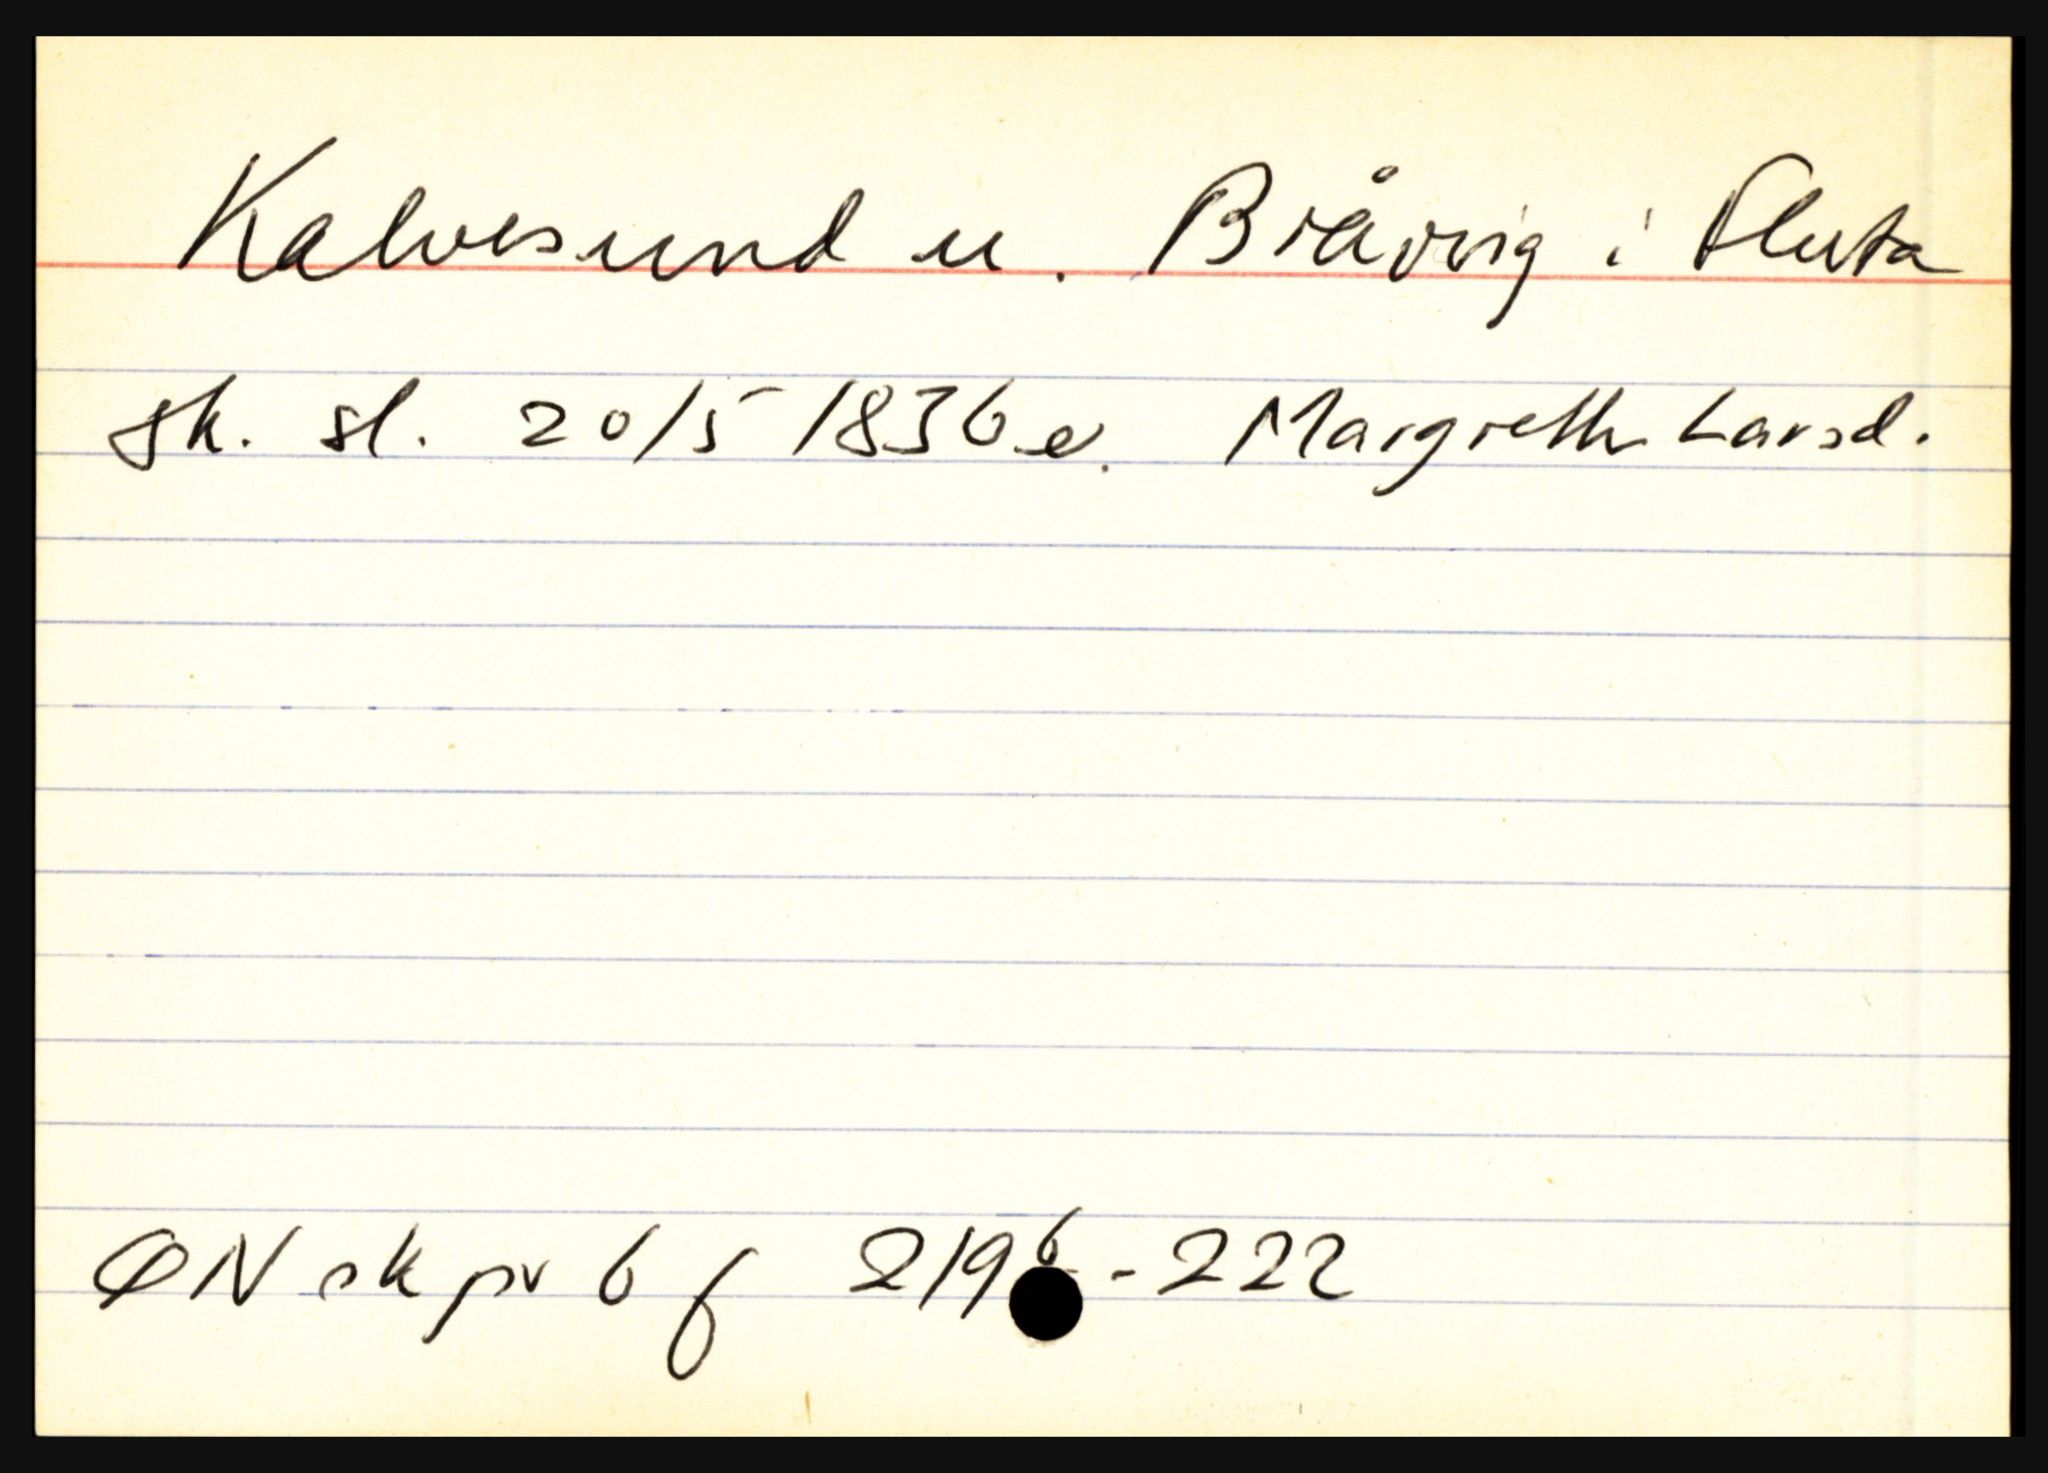 Kalvesund u. Bråvvig i Flosta
sk. sl. 20/5 1836 e. Margrethe Larsd.
ØN sk pr 6 f 219b - 222